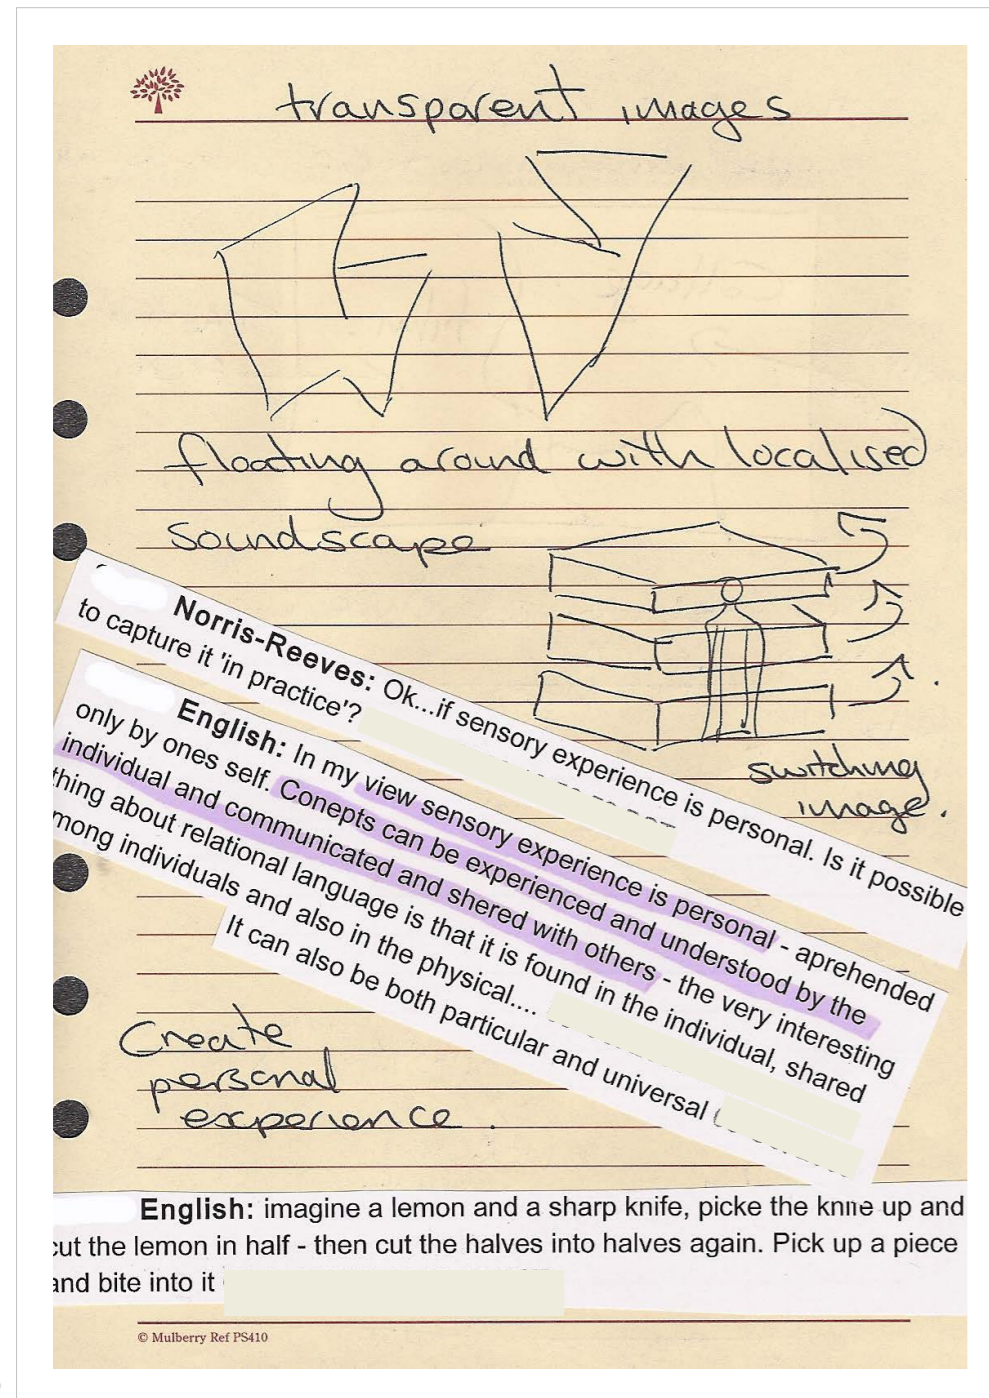 transparent images
floating around with localised
soundscape
switching
image.
Norris-Reeves: Ok...if sensory experience is personal. Is it possible
to capture it 'in practice'?
English: In my view sensory experience is personal - aprehended
only by ones self. Conepts can be experienced and understood by the
individual and communicated and shered with others - the very interesting
thing about relational language is that it is found in the individual, shared
mong individuals and also in the physical....
It can also be both particular and universal (
Create
personal
experience.
English: imagine a lemon and a sharp knife, picke the knife up and
cut the lemon in half - then cut the halves into halves again. Pick up a piece
and bite into it
© Mulberry Ref PS410